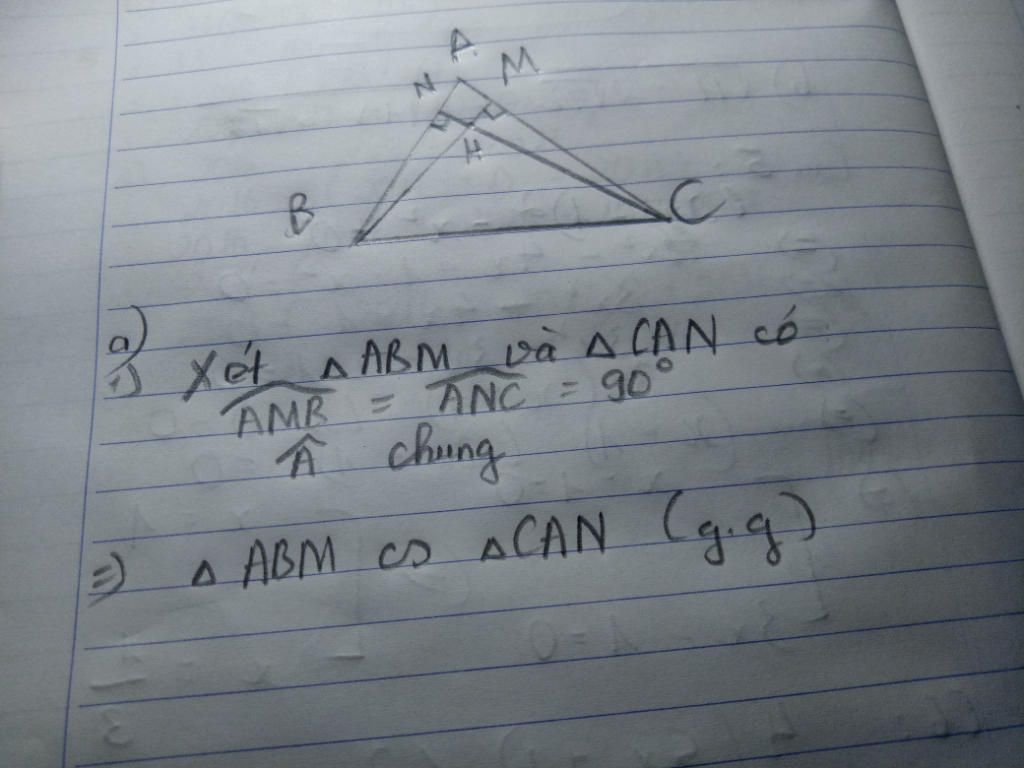 A
N
M
H
B
C
a)
1) Xét △ABM và △CAN có
AMB = ANC = 90°
Â chung
=> △ABM ∽ △CAN (g.g)